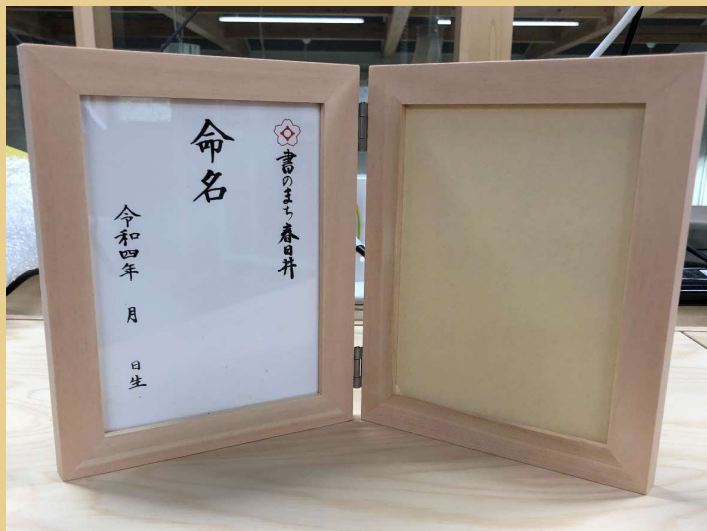 書のまち春日井
命名
令和四年　月　日生